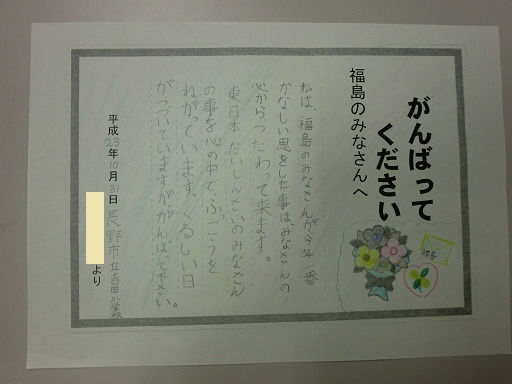 がんばって
ください
福島のみなさんへ
私は、福島のみなさんが今年一番
かなしい思をした事はみなさんの
心からつたわって来ます。
東日本だいしんさいのみなさん
の事を心の中でふっこうを
ねがっています。くるしい日
がつづいていますががんばって下さい。
平成23年10月31日 長野市立吉田小学校
より
福島